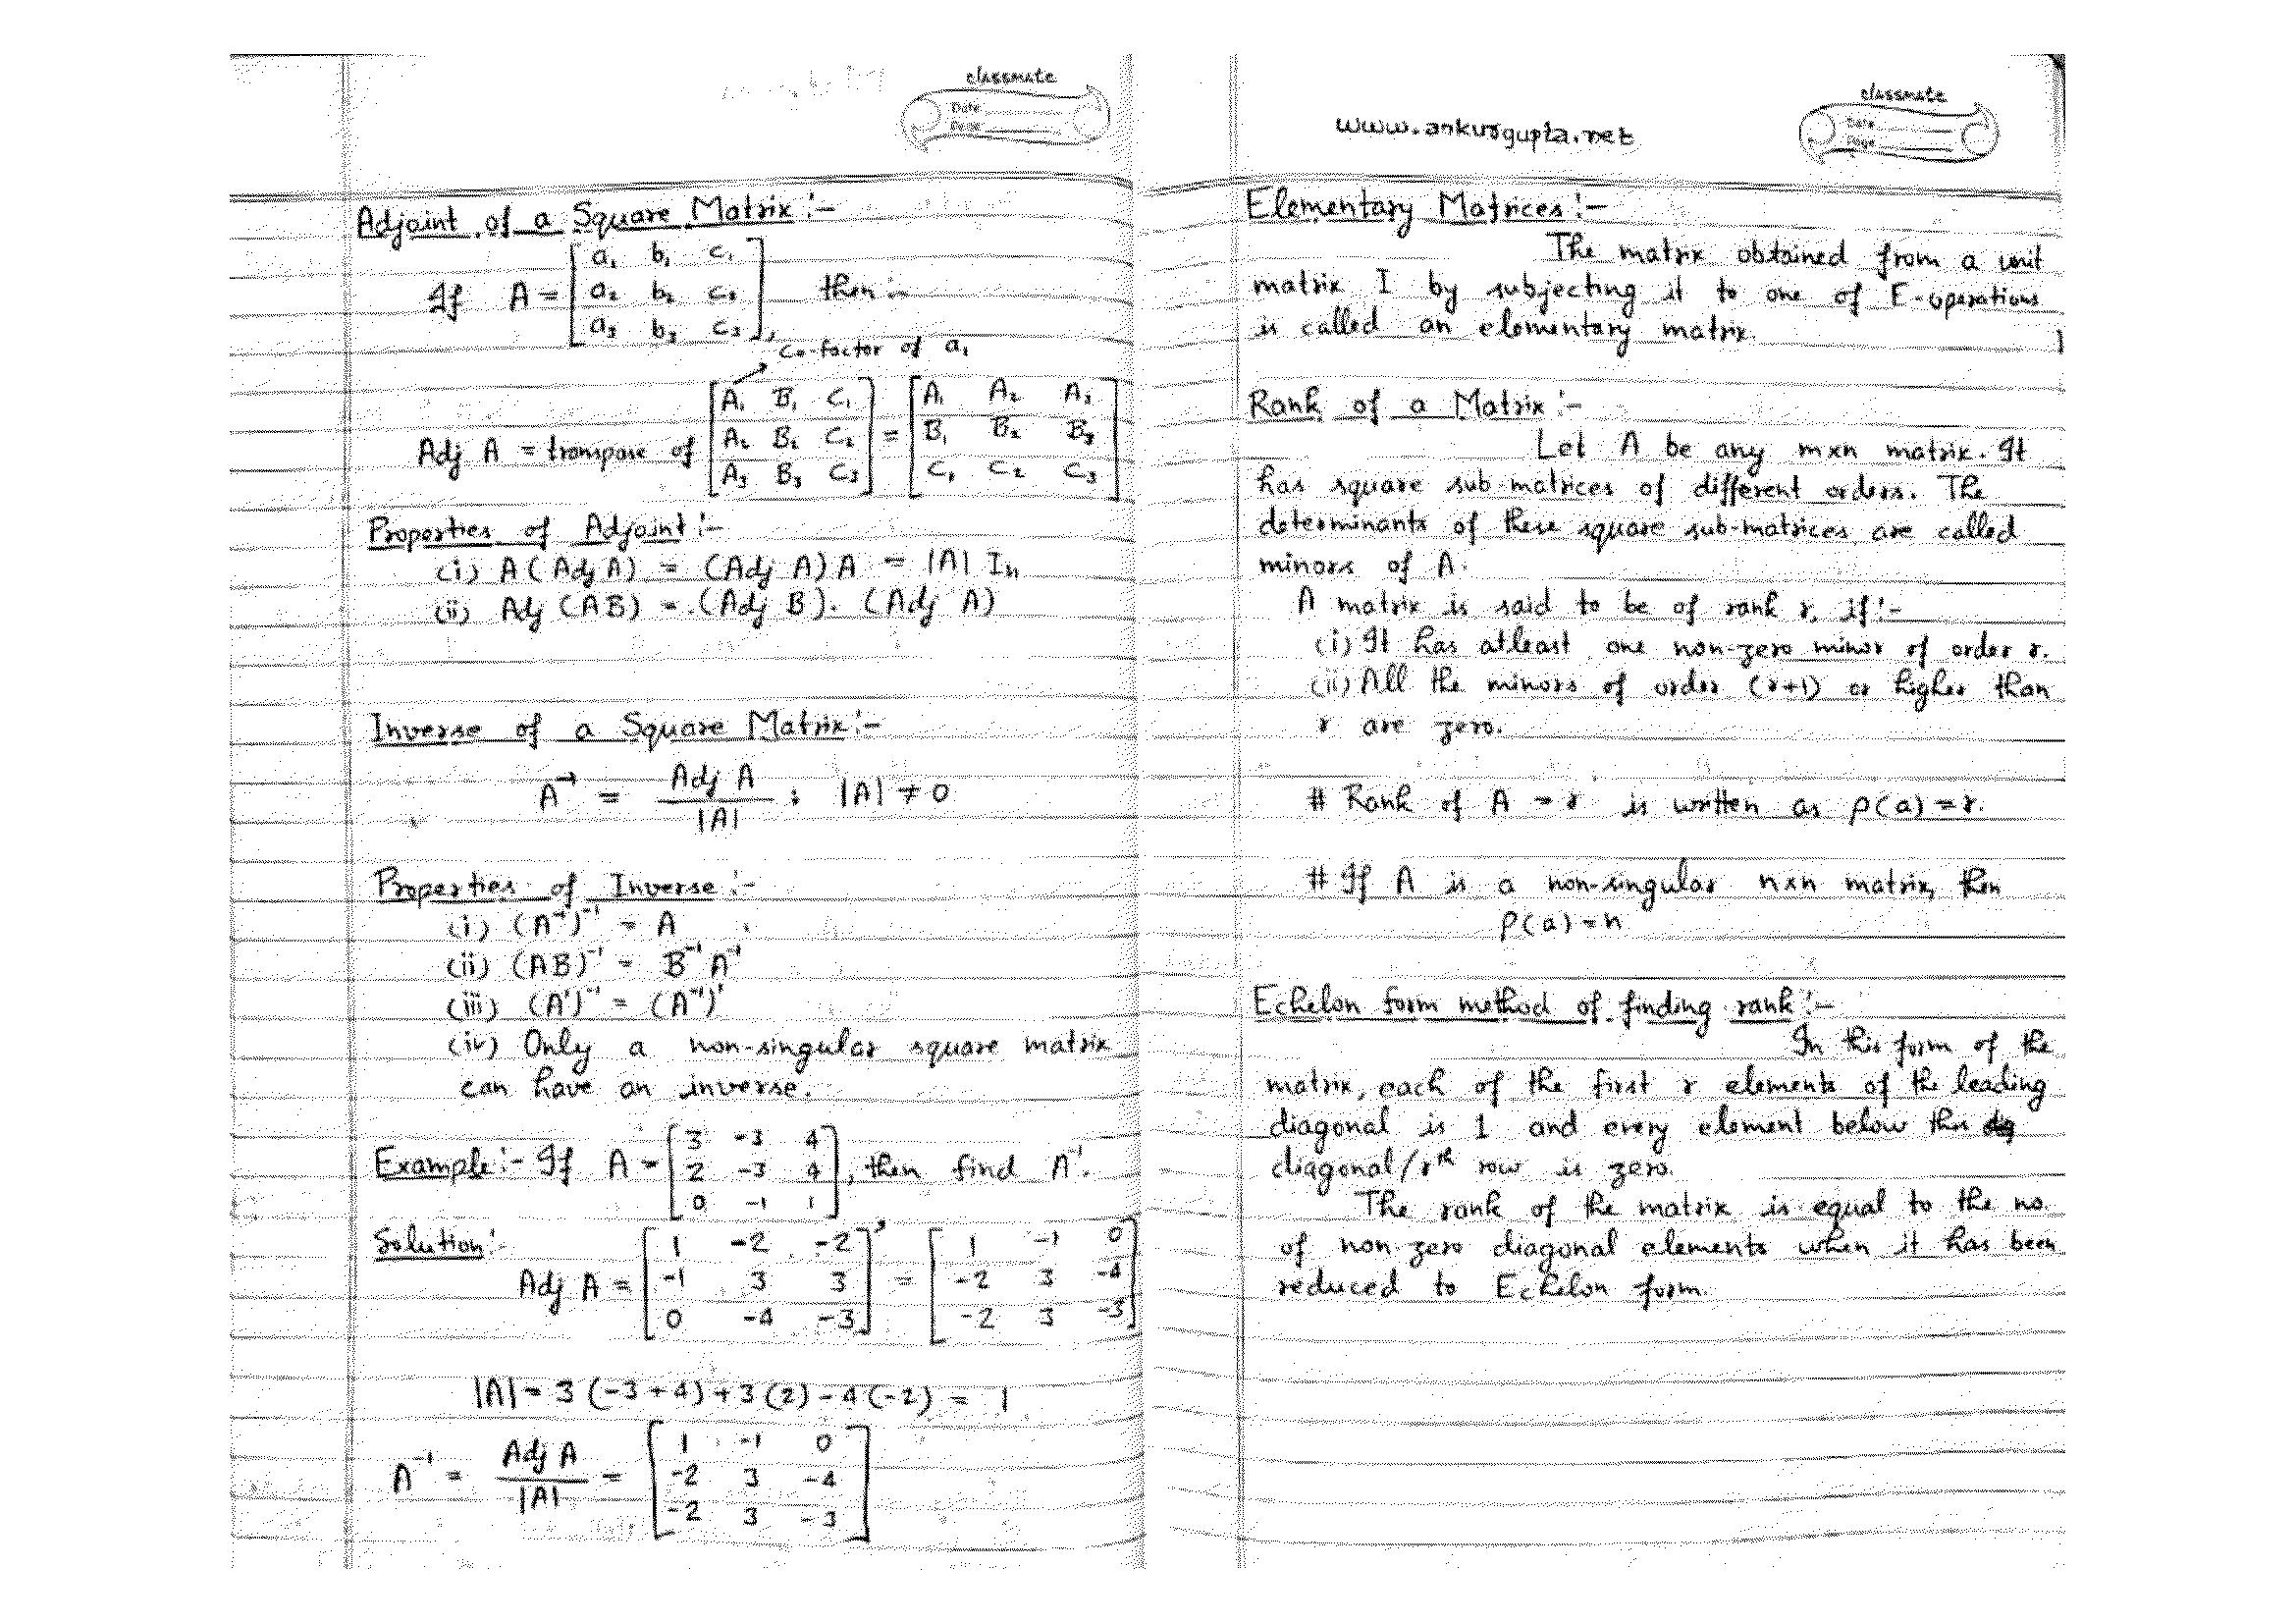 classmate
Date
Page
Adjoint of a Square Matrix:-
If A = [a₁ b₁ c₁
a₂ b₂ c₂
a₃ b₃ c₃], then:-
co-factor of a₁
Adj A = transpose of [A₁ B₁ C₁
A₂ B₂ C₂
A₃ B₃ C₃] = [A₁ A₂ A₃
B₁ B₂ B₃
C₁ C₂ C₃]
Properties of Adjoint:-
(i) A(Adj A) = (Adj A)A = |A| Iₙ
(ii) Adj (AB) = (Adj B). (Adj A)
Inverse of a Square Matrix:-
A⁻¹ = Adj A / |A| ; |A| ≠ 0
Properties of Inverse:-
(i) (A⁻¹)⁻¹ = A
(ii) (AB)⁻¹ = B⁻¹A⁻¹
(iii) (A')⁻¹ = (A⁻¹)'
(iv) Only a non-singular square matrix
can have an inverse.
Example:- If A = [3 -3 4
2 -3 4
0 -1 1], then find A⁻¹.
Solution:-
Adj A = [1 -2 -2
-1 3 3
0 -4 -3]' = [1 -1 0
-2 3 -4
-2 3 -3]
|A| = 3(-3+4)+3(2)-4(-2) = 1
A⁻¹ = Adj A / |A| = [1 -1 0
-2 3 -4
-2 3 -3]
www.ankurgupta.net
classmate
Date
Page
Elementary Matrices:-
The matrix obtained from a unit
matrix I by subjecting it to one of E-operations
is called an elementary matrix.
Rank of a Matrix:-
Let A be any m×n matrix. It
has square sub-matrices of different orders. The
determinants of these square sub-matrices are called
minors of A.
A matrix is said to be of rank r, if:-
(i) It has atleast one non-zero minor of order r.
(ii) All the minors of order (r+1) or higher than
r are zero.
# Rank of A = r is written as ρ(a) = r.
# If A is a non-singular n×n matrix, then
ρ(a) = n
Echelon form method of finding rank:-
In this form of the
matrix, each of the first r elements of the leading
diagonal is 1 and every element below this
diagonal/rᵗʰ row is zero.
The rank of the matrix is equal to the no.
of non-zero diagonal elements when it has been
reduced to Echelon form.